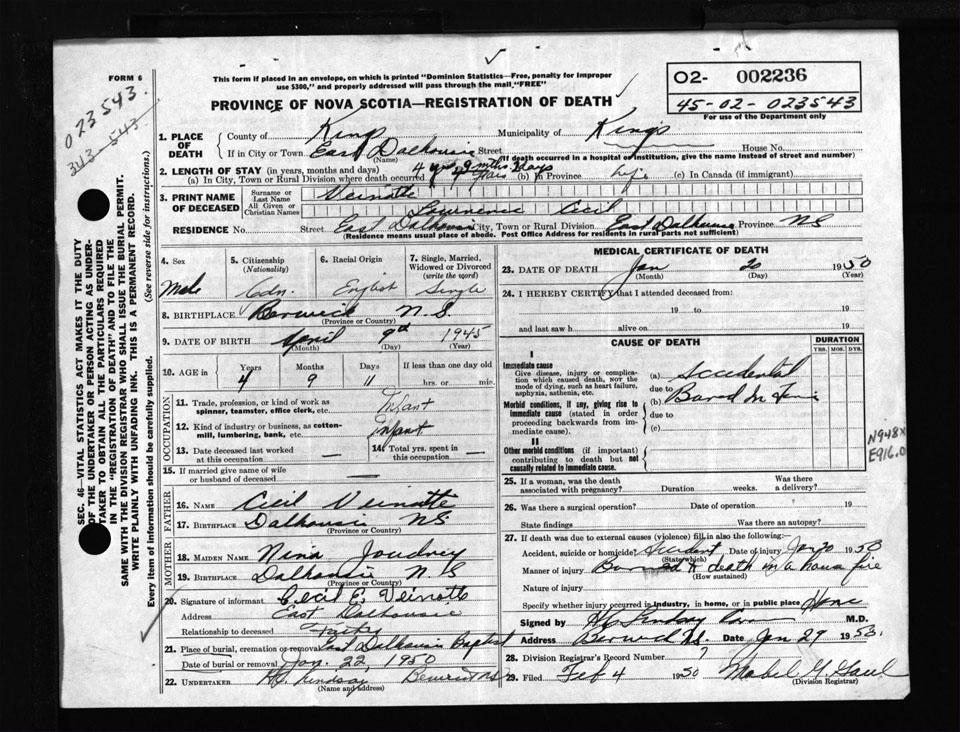 FORM 6
This form if placed in an envelope, on which is printed "Dominion Statistics—Free, penalty for improper
use $300," and properly addressed will pass through the mail "FREE"
02- 002236
45-02-023543
For use of the Department only
PROVINCE OF NOVA SCOTIA—REGISTRATION OF DEATH
023543.
343-543
SEC. 46—VITAL STATISTICS ACT MAKES IT THE DUTY
OF THE UNDERTAKER OR PERSON ACTING AS UNDER-
TAKER TO OBTAIN ALL THE PARTICULARS REQUIRED
IN THE "REGISTRATION OF DEATH" AND TO FILE THE
SAME WITH THE DIVISION REGISTRAR WHO SHALL ISSUE THE BURIAL PERMIT.
WRITE PLAINLY WITH UNFADING INK. THIS IS A PERMANENT RECORD.
Every item of information should be carefully supplied. (See reverse side for instructions.)
1. PLACE OF DEATH County of Kings Municipality of Kings
If in City or Town East Dalhousie Street House No.
(Name) (If death occurred in a hospital or institution, give the name instead of street and number)
2. LENGTH OF STAY (in years, months and days)
(a) In City, Town or Rural Division where death occurred 4 yrs 9 mths days (b) In Province life (c) In Canada (if immigrant)
3. PRINT NAME OF DECEASED Surname or Last Name Veinotte
All Given or Christian Names Lawrence Cecil
RESIDENCE No. Street East Dalhousie City, Town or Rural Division East Dalhousie Province NS
(Residence means usual place of abode. Post Office Address for residents in rural parts not sufficient)
4. Sex 5. Citizenship (Nationality) 6. Racial Origin 7. Single, Married, Widowed or Divorced (write the word)
Male Cdn. English Single
8. BIRTHPLACE Berwick N.S.
(Province or Country)
9. DATE OF BIRTH April 9th 1945
(Month) (Day) (Year)
10. AGE in Years Months Days If less than one day old
4 9 11 hrs. or min.
OCCUPATION
11. Trade, profession, or kind of work as spinner, teamster, office clerk, etc. Infant
12. Kind of industry or business, as cotton-mill, lumbering, bank, etc. Infant
13. Date deceased last worked at this occupation — 14. Total yrs. spent in this occupation —
15. If married give name of wife or husband of deceased —
FATHER
16. NAME Cecil Veinotte
17. BIRTHPLACE Dalhousie NS
(Province or Country)
MOTHER
18. MAIDEN NAME Nina Joudrey
19. BIRTHPLACE Dalhousie N.S
(Province or Country)
20. Signature of informant Cecil E. Veinotte
Address East Dalhousie
Relationship to deceased Father
21. Place of burial, cremation or removal East Dalhousie Baptist
Date of burial or removal Jan. 22, 1950
22. UNDERTAKER H.C. Lindsay Berwick NS
(Name and address)
MEDICAL CERTIFICATE OF DEATH
23. DATE OF DEATH Jan 20 1950
(Month) (Day) (Year)
24. I HEREBY CERTIFY that I attended deceased from:
19 to 19
and last saw h alive on 19
CAUSE OF DEATH DURATION
YRS. MOS. DYS.
I
Immediate cause
Give disease, injury or complication which caused death, NOT the mode of dying, such as heart failure, asphyxia, asthenia, etc.
(a) Accidental
due to
Morbid conditions, if any, giving rise to immediate cause (stated in order proceeding backwards from immediate cause).
(b) Burned In
due to
(c)
II
Other morbid conditions (if important) contributing to death but not causally related to immediate cause.
N948X
E916.0
25. If a woman, was the death associated with pregnancy? Duration weeks. Was there a delivery?
26. Was there a surgical operation? Date of operation 19
State findings Was there an autopsy?
27. If death was due to external causes (violence) fill in also the following:
Accident, suicide or homicide? Accident Date of injury Jan 20 1950
(State which)
Manner of injury Burned to death in a house fire
(How sustained)
Nature of injury
Specify whether injury occurred in industry, in home, or in public place Home
Signed by M.D.
Address Berwick N.S. Date Jan 29 1953.
28. Division Registrar's Record Number 7
29. Filed Feb 4 1950 Mabel G. Gaul
(Division Registrar)